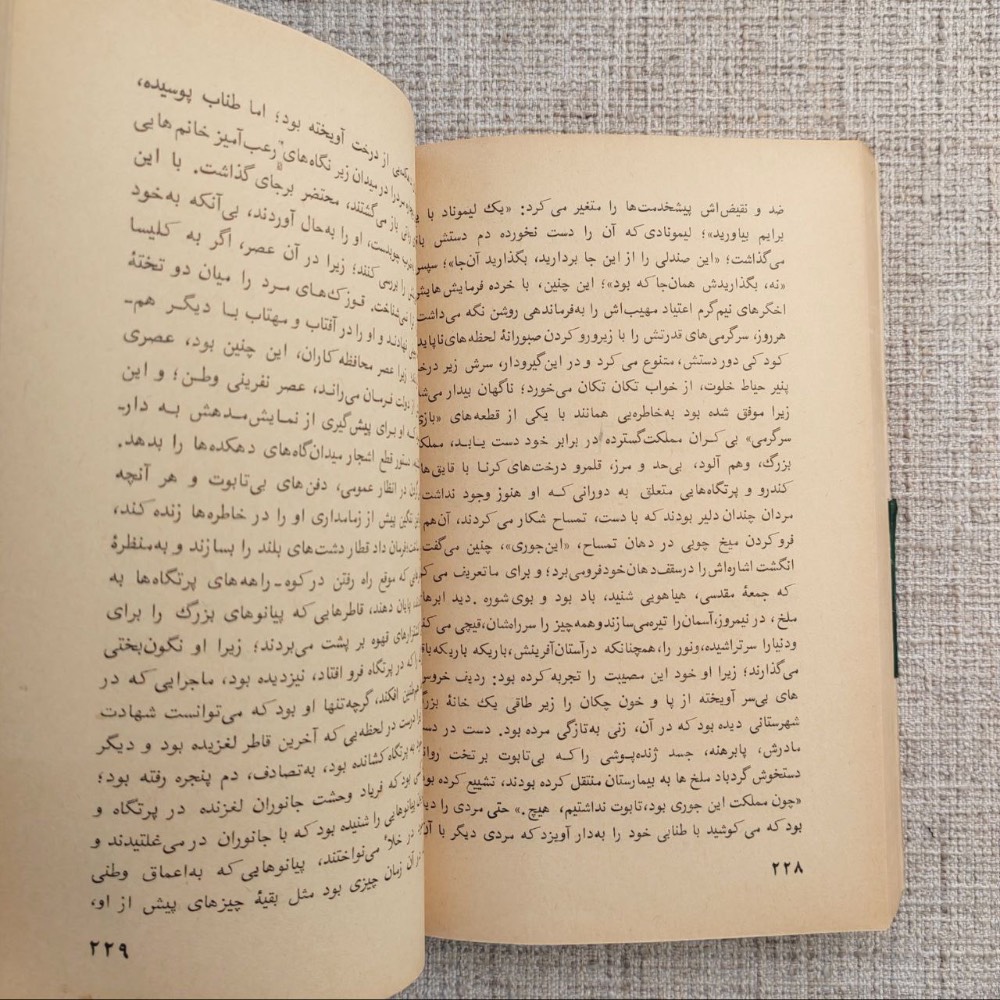 ضد و نقیض‌اش پیشخدمت‌ها را متغیر می‌کرد: «یك لیموناد با
برایم بیاورید»؛ لیمونادی‌که آن را دست نخورده دم دستش
می‌گذاشت؛ «این صندلی را از این جا بردارید، بگذارید آن‌جا»؛ سپس
«نه، بگذاریدش همان‌جا که بود»؛ این چنین، با خرده فرمایش‌هایش
اخگرهای نیم‌گرم اعتیاد مهیب‌اش را به‌فرماندهی روشن نگه می‌داشت
هرروز، سرگرمی‌های قدرتش را با زیرورو کردن صبورانهٔ لحظه‌های
کودکی دوردستش، متنوع می‌کرد و در این‌گیرودار، سرش زیر
پنیر حیاط خلوت، از خواب تکان تکان می‌خورد؛ ناگهان بیدار
زیرا موفق شده بود به‌خاطره‌یی همانند با یکی از قطعه‌های
سرگرمی» بی‌کران مملکت‌گسترده در برابر خود دست یابد،
بزرگ، وهم آلود، بی‌حد و مرز، قلمرو درخت‌های کرنا با قایق
کندرو و پرتگاه‌هایی متعلق به دورانی‌که او هنوز وجود نداشت
مردان چندان دلیر بودند که با دست، تمساح شکار می‌کردند، آن‌هم
فروکردن میخ چوبی در دهان تمساح، «این‌جوری»، چنین می‌گفت
انگشت اشاره‌اش را درسقف‌دهان‌خودفرومی‌برد؛ و برای ماتعریف
که جمعهٔ مقدسی، هیاهویی شنید، باد بود و بوی‌شوره. دید
ملخ، در نیمروز، آسمان‌را تیره‌می‌سازندوهمه‌چیز را سرراه‌شان، قیچی
ودنیارا سرتراشیده، ونور را، همچنانکه درآستان‌آفرینش، باریکه باریکه
می‌گذارند؛ زیرا او خود این مصیبت را تجربه کرده بود: ردیف خروس
های بی‌سر آویخته از پا و خون چکان را زیر طاقی یك خانهٔ
شهرستانی دیده بود که در آن، زنی به‌تازگی مرده بود. دست در
مادرش، پابرهنه، جسد ژنده‌پوشی راکه بی‌تابوت بر تخت
دستخوش گردباد ملخ ها به بیمارستان منتقل کرده بودند، تشییع کرده
«چون مملکت این جوری بود، تابوت نداشتیم، هیچ.» حتی مردی را
بود که می‌کوشید با طنابی خود را به‌دار آویزد که مردی دیگر با
۲۲۸
از درخت آویخته بود؛ اما طناب پوسیده،
را درمیدان زیر نگاه‌های رعب‌آمیز خانم‌هایی
باز می‌گشتند، محتضر برجای گذاشت. با این
او را به‌حال آوردند، بی‌آنکه به‌خود
را بررسی کنند؛ زیرا در آن عصر، اگر به کلیسا
نمی‌شناخت. قوزک‌های مرد را میان دو تختهٔ
نهادند و او را در آفتاب و مهتاب با دیگر هم‌ـ
زیرا عصر محافظه‌کاران، این چنین بود، عصری
دولت فرمان می‌راند، عصر نفرینی وطن؛ و این
او برای پیش‌گیری از نمایش‌مدهش به دارـ
دستور قطع اشجار میدان‌گاه‌های دهکده‌ها را بدهد.
در انظار عمومی، دفن‌های بی‌تابوت و هر آنچه
ننگین پیش از زمامداری او را در خاطره‌ها زنده کند،
فرمان داد قطار دشت‌های بلند را بسازند و به‌منظرهٔ
که موقع راه رفتن درکوه‌ـ‌راهه‌های پرتگاه‌ها به
پایان دهند، قاطرهایی‌که پیانوهای بزرگ را برای
قهوه بر پشت می‌بردند؛ زیرا او نگون‌بختی
که در پرتگاه فرو افتاد، نیزدیده بود، ماجرایی که در
افکند، گرچه‌تنها او بودکه می‌توانست شهادت
درست در لحظه‌یی‌که آخرین قاطر لغزیده بود و دیگر
به پرتگاه‌کشانده بود، به‌تصادف، دم پنجره رفته بود؛
بود که فریاد وحشت جانوران لغزنده در پرتگاه و
پیانوهایی را شنیده بود که با جانوران در می‌غلتیدند و
در خلأ می‌نواختند، پیانوهایی‌که به‌اعماق وطنی
در آن زمان چیزی بود مثل بقیهٔ چیزهای پیش از او،
۲۲۹